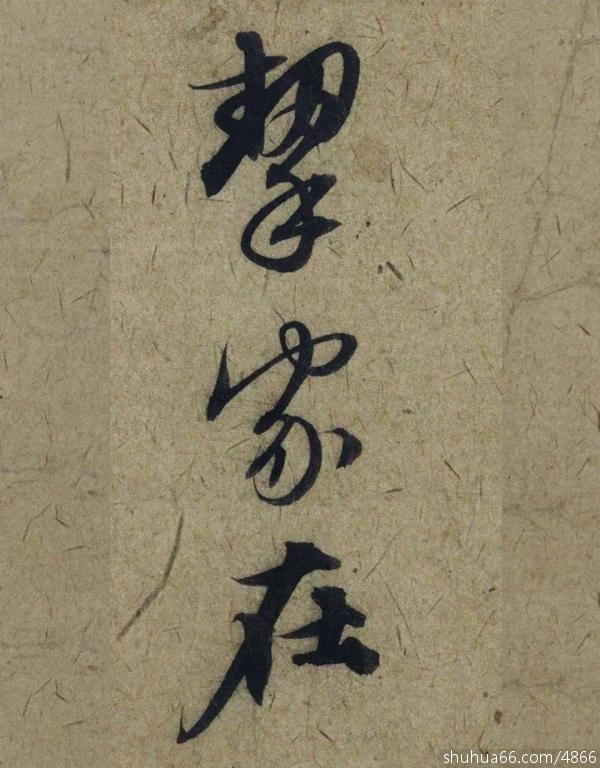 挈家在
shuhua66.com/4866